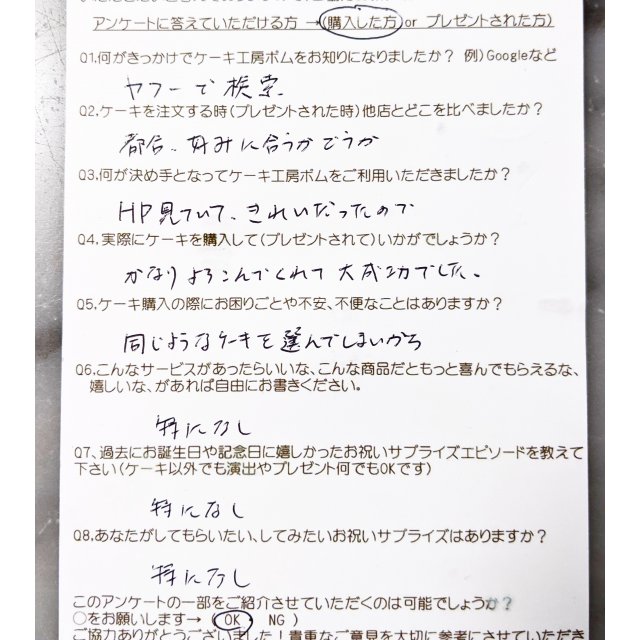 アンケートに答えていただける方 →(購入した方)or プレゼントされた方)
Q1.何がきっかけでケーキ工房ボムをお知りになりましたか? 例)Googleなど
ヤフーで検索
Q2.ケーキを注文する時(プレゼントされた時)他店とどこを比べましたか?
都合、好みに合うかどうか
Q3.何が決め手となってケーキ工房ボムをご利用いただきましたか?
HP見ていて、きれいだったので
Q4.実際にケーキを購入して(プレゼントされて)いかがでしょうか?
かなりよろこんでくれて大成功でした。
Q5.ケーキ購入の際にお困りごとや不安、不便なことはありますか?
同じようなケーキを選んでしまいがち
Q6.こんなサービスがあったらいいな、こんな商品だともっと喜んでもらえるな、
嬉しいな、があれば自由にお書きください。
特になし
Q7、過去にお誕生日や記念日に嬉しかったお祝いサプライズエピソードを教えて
下さい(ケーキ以外でも演出やプレゼント何でもOKです)
特になし
Q8.あなたがしてもらいたい、してみたいお祝いサプライズはありますか?
特になし
このアンケートの一部をご紹介させていただくのは可能でしょうか?
○をお願いします→ ( OK ・ NG )
ご協力ありがとうございました!貴重なご意見を大切に参考にさせていただき